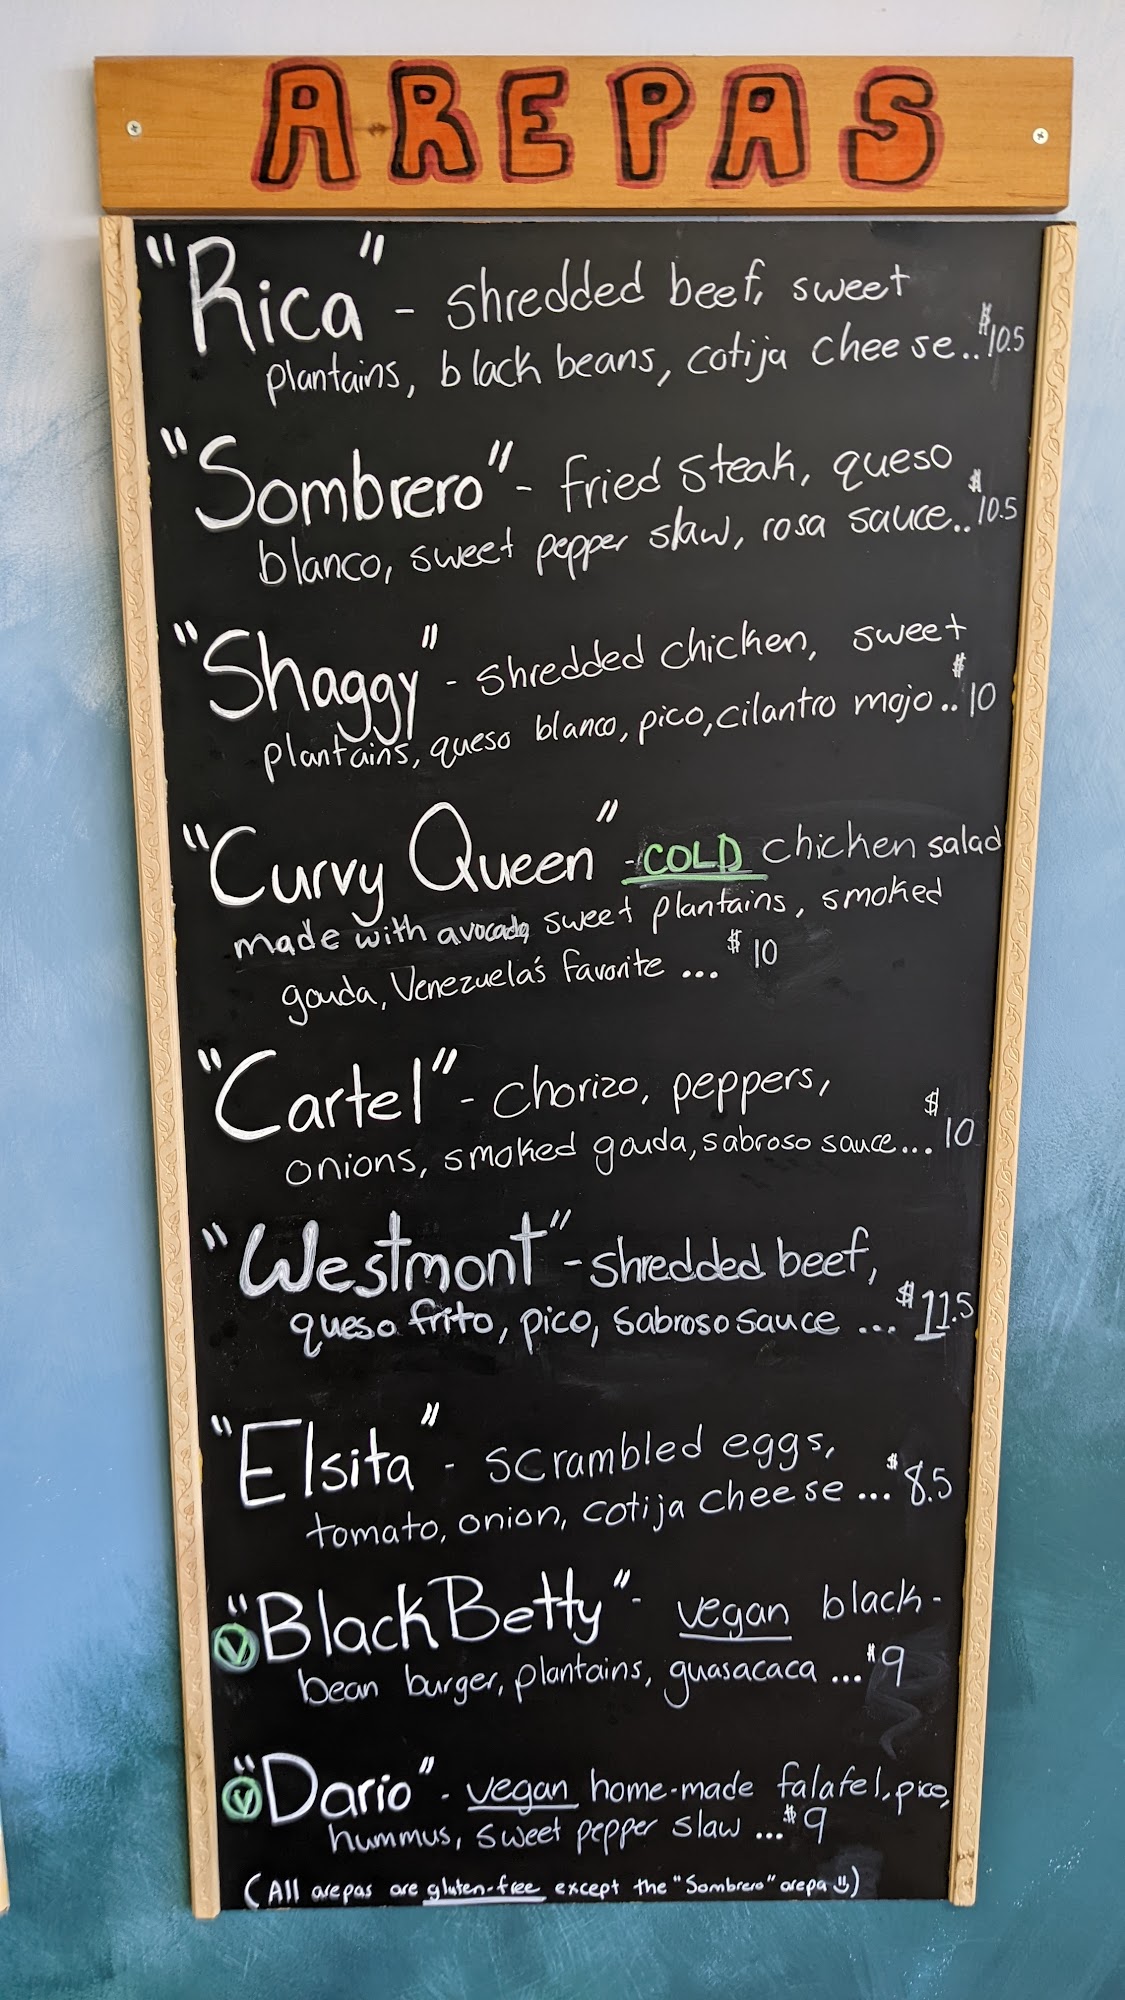 AREPAS
"Rica" - shredded beef, sweet
plantains, black beans, cotija cheese..$10.5
"Sombrero" - fried steak, queso
blanco, sweet pepper slaw, rosa sauce..$10.5
"Shaggy" - shredded chicken, sweet
plantains, queso blanco, pico, cilantro mojo..$10
"Curvy Queen" - COLD chicken salad
made with avocado, sweet plantains, smoked
gouda, Venezuela's favorite ...$10
"Cartel" - chorizo, peppers,
onions, smoked gouda, sabroso sauce...$10
"Westmont" - shredded beef,
queso frito, pico, sabroso sauce ...$11.5
"Elsita" - scrambled eggs,
tomato, onion, cotija cheese ...$8.5
V "Black Betty" - vegan black-
bean burger, plantains, guasacaca ...$9
V "Dario" - vegan home-made falafel, pico,
hummus, sweet pepper slaw ...$9
(All arepas are gluten-free except the "Sombrero" arepa ☺)